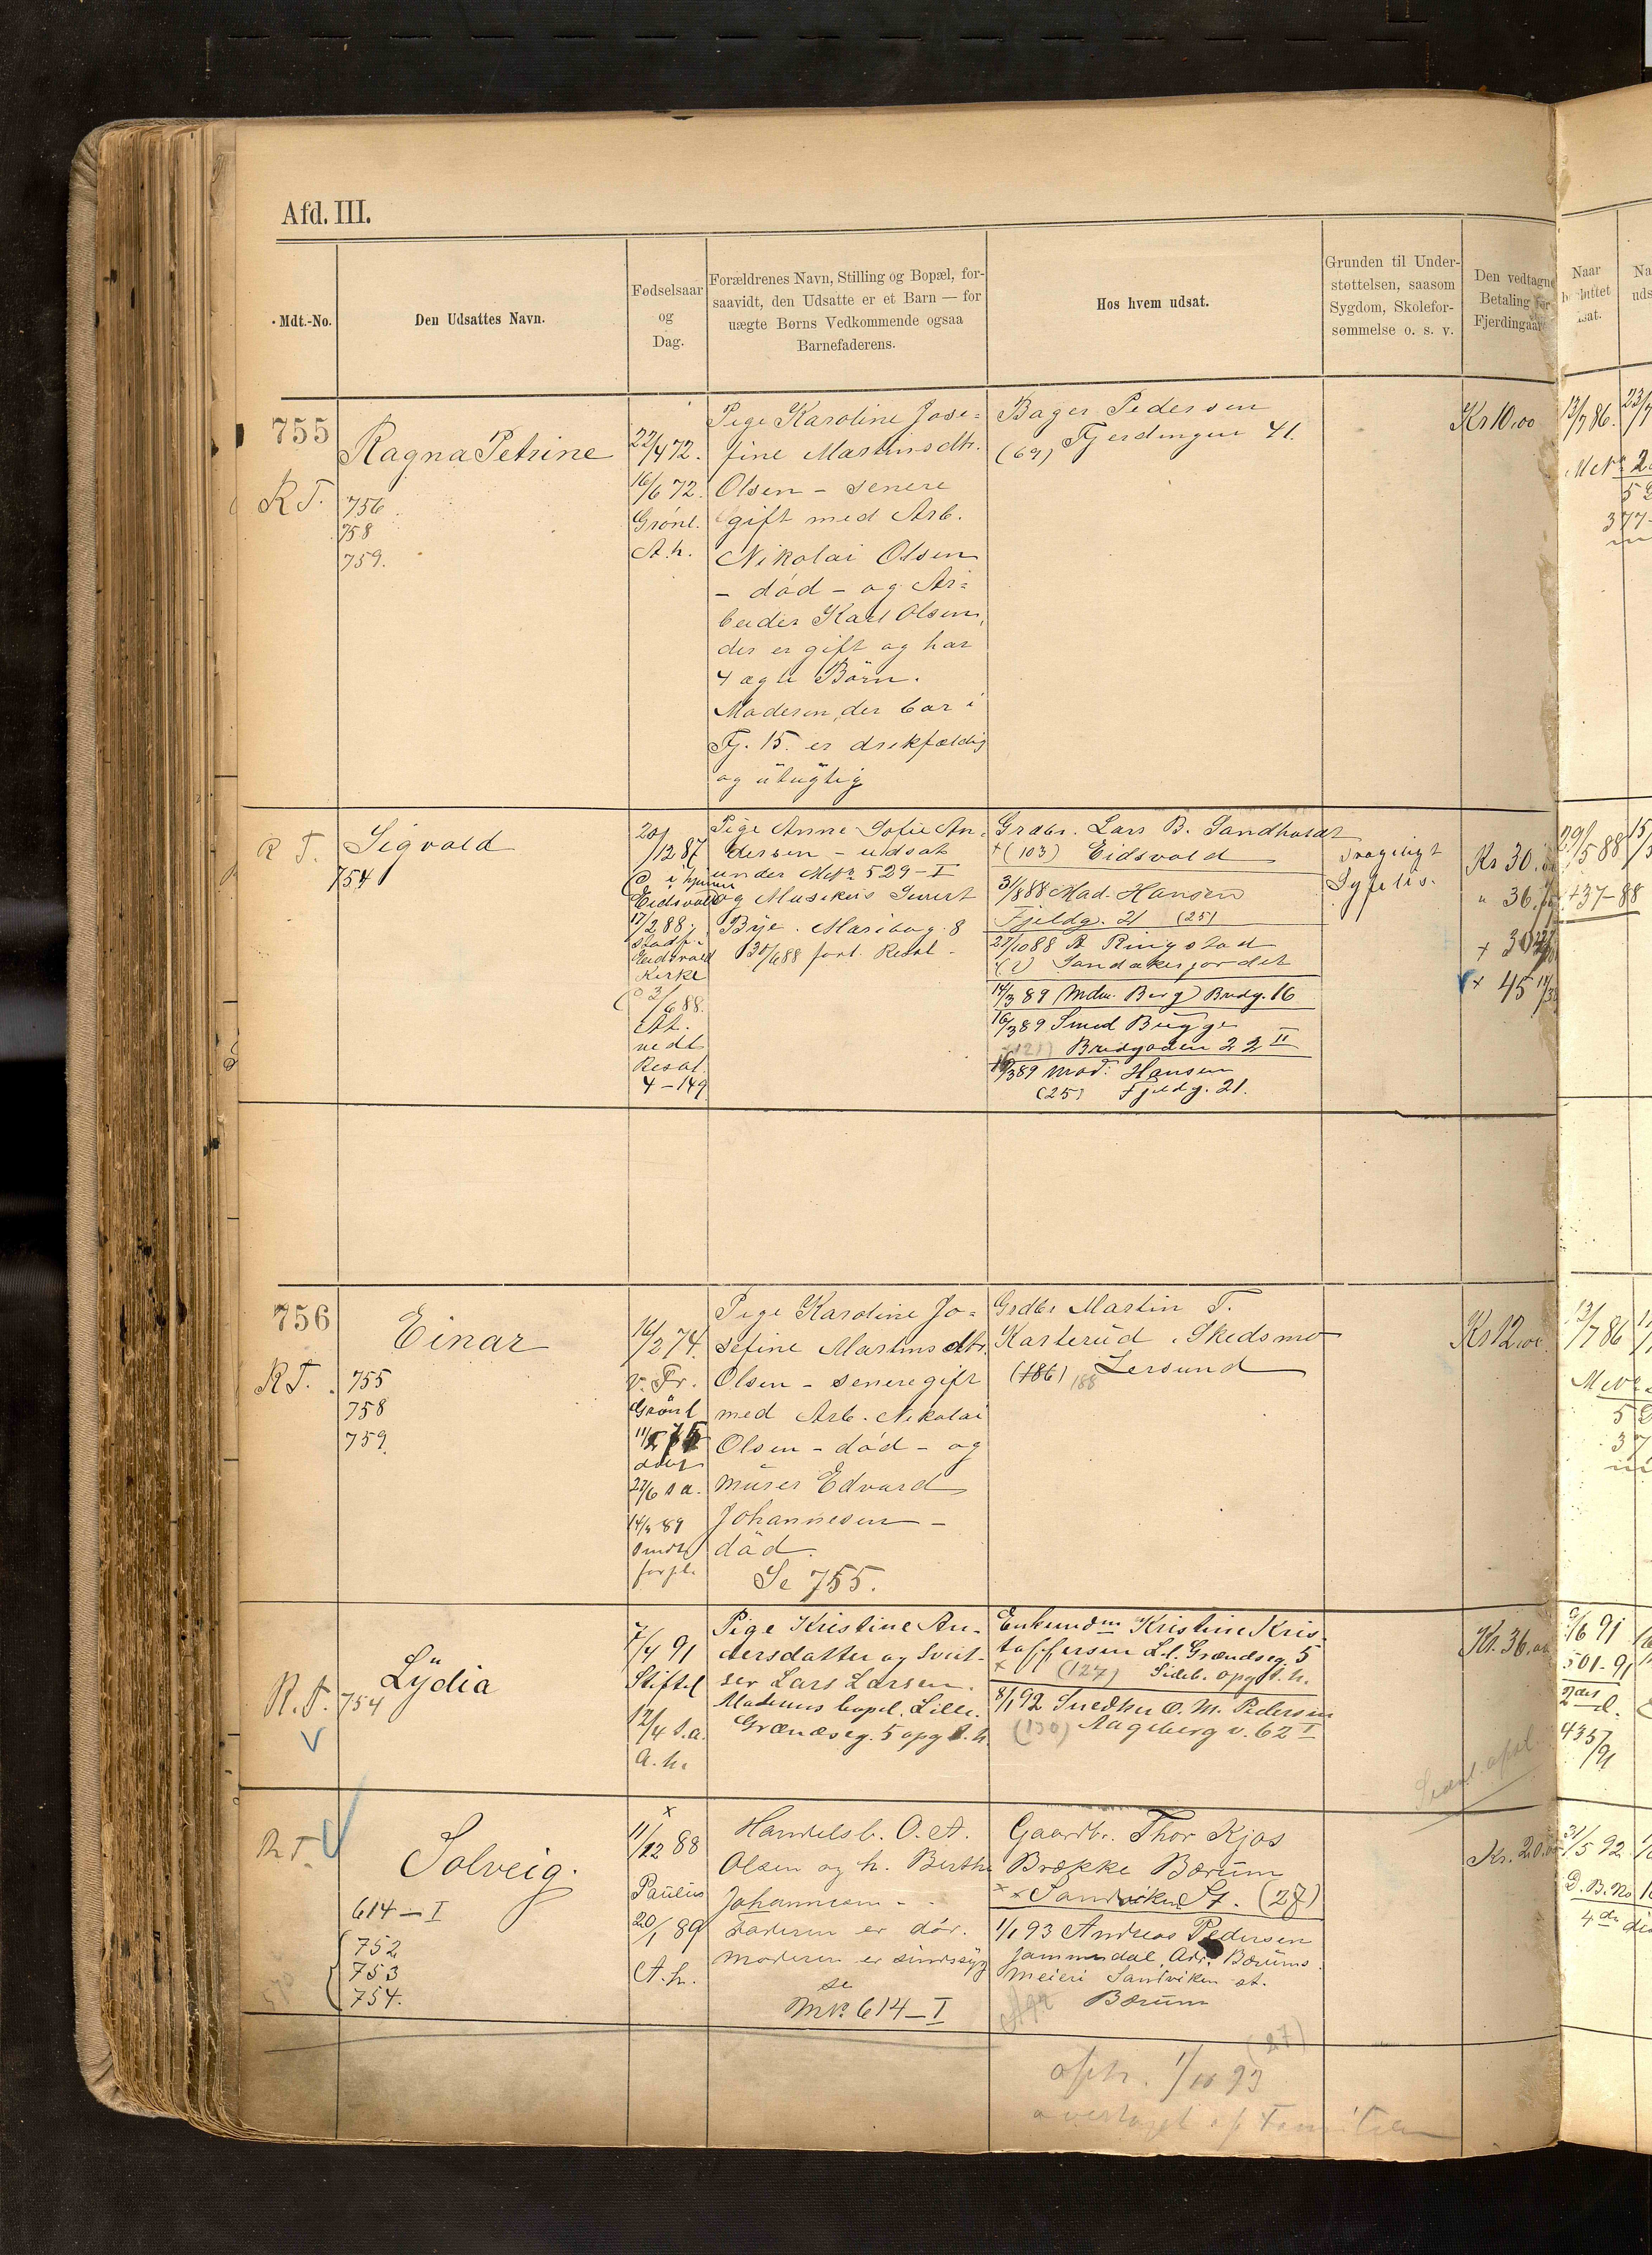 Afd. III.
Mdt.-No.
Den Udsattes Navn.
Fødselsaar
og
Dag.
Forældrenes Navn, Stilling og Bopæl, for-
saavidt, den Udsatte er et Barn — for
uægte Børns Vedkommende ogsaa
Barnefaderens.
Hos hvem udsat.
Grunden til Under-
støttelsen, saasom
Sygdom, Skolefor-
sømmelse o. s. v.
Den vedtagne
Betaling for
Fjerdingaar
Naar
755
R T.
Ragna Petrine
756
758
759.
22/4 72.
16/6 72.
Grönl.
A. h.
Pige Karoline Jose-
fine Martinsdtr.
Olsen - senere
gift med Arb.
Nikolai Olsen
- död - og Ar-
beider Karl Olsen,
der er gift og har
4 ægte Börn.
Moderen, der bor i
Fj. 15. er drikfældig
og utugtig
Bager Pedersen
(69) Fjerdingen 41.
Kr 10,00
13/7 86.
R T.
Sigvald
754
20/12 87
i hjemmet
Eidsvold
17/2 88;
stadf. i
Eidsvold
Kirke
3/6 88.
Resol.
4-149
Pige Anne Sofie An-
dersen - udsat
under Mdt. No 529-I
og Musikus Sivert
Bye. Maribog. 8
30/6 88 forl. Resol.
Grdbr. Lars B. Sandholdt
+(103) Eidsvold
31/8 88 Mad. Hansen
Fjeldg. 21 (25)
27/10 88 Ringstad
Sandakerjordet
14/3 89 Mdm. Berg Brudg. 16
16/3 89 Smed Bugge
(121) Bredgaden 22 II
/3 89 Mad. Hansen
(25) Fjeldg. 21.
Syfilis.
Kr 30.
" 36.
+ 30
+ 45
29/5 88
+37-88
756
R T.
Einar
755
758
759.
16/2 74.
v. Fr.
Grönl
döbt
27/6 s a.
14/3 89
forpl.
Pige Karoline Jo-
sefine Martinsdtr.
Olsen - senere gift
med Arb. Nikolai
Olsen - död - og
murer Edvard
Johannesen -
död.
Se 755.
Grdbr Martin T.
Karterud, Skedsmo
(186) 188 Lersund
Kr 12,00.
13/7 86
R. T.
Lydia
754
7/4 91
Stiftel
12/4 s.a.
A. h.
Pige Kristine An-
dersdatter og Svært-
ser Lars Larsen.
Moderens bopæl. Lille
Grændseg. 5 opg t. h
Enkemdm Kristine Kris-
toffersen Ll. Grændseg. 5
+ (127) Sideb. opg t. h.
8/1 92 Snedker O. M. Pedersen
(130) Aageberg v. 62 I
Kr. 36,00
/6 91
501-91
435/91
R T.
Solveig.
614-I
752
753
754.
11/12 88
Paulus
20/1 89
A. h.
Handelsb. O. A.
Olsen og h. Berthe
Johannesen -
Faderen er död.
moderen er sindssyg
se
M No 614-I
Gaardbr. Thor Kjos
Brække Bærum
Sandviken St. (27)
1/1 93 Andreas Pedersen
Jammerdal, Adr. Bærums
Meieri Sandviken st.
Bærum
(27)
Kr. 20.
31/5 92
D. B. No
oph. 1/10 93
overtaget af Familien